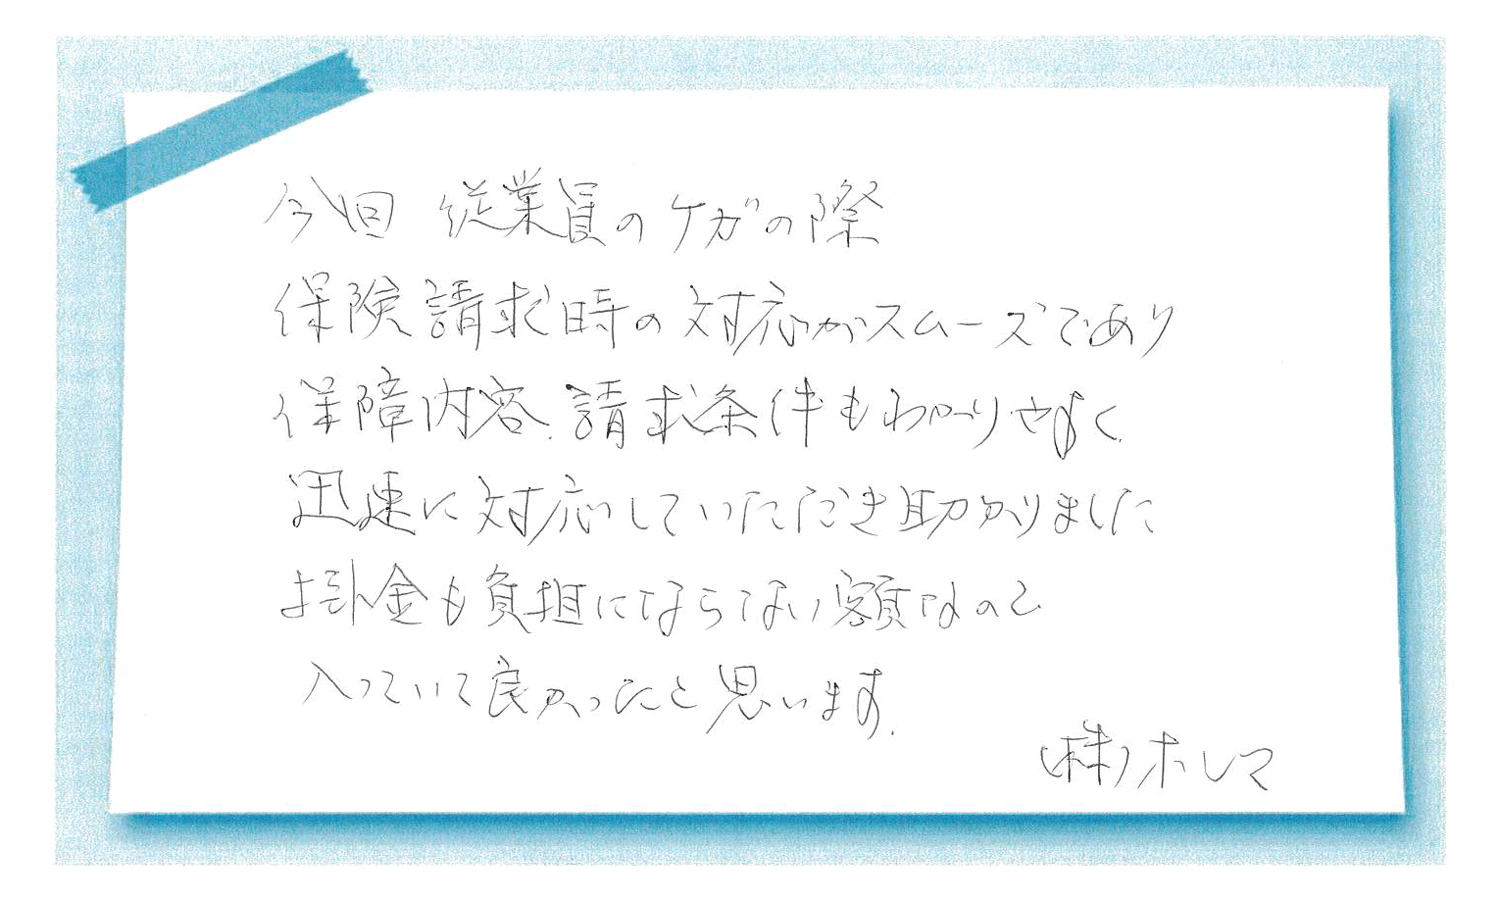 今回 従業員のケガの際
保険請求時の対応がスムーズであり
保障内容、請求条件もわかりやすく
迅速に対応していただき助かりました
お掛金も負担にならない額なので
入っていて良かったと思います。
(株)ホレマ